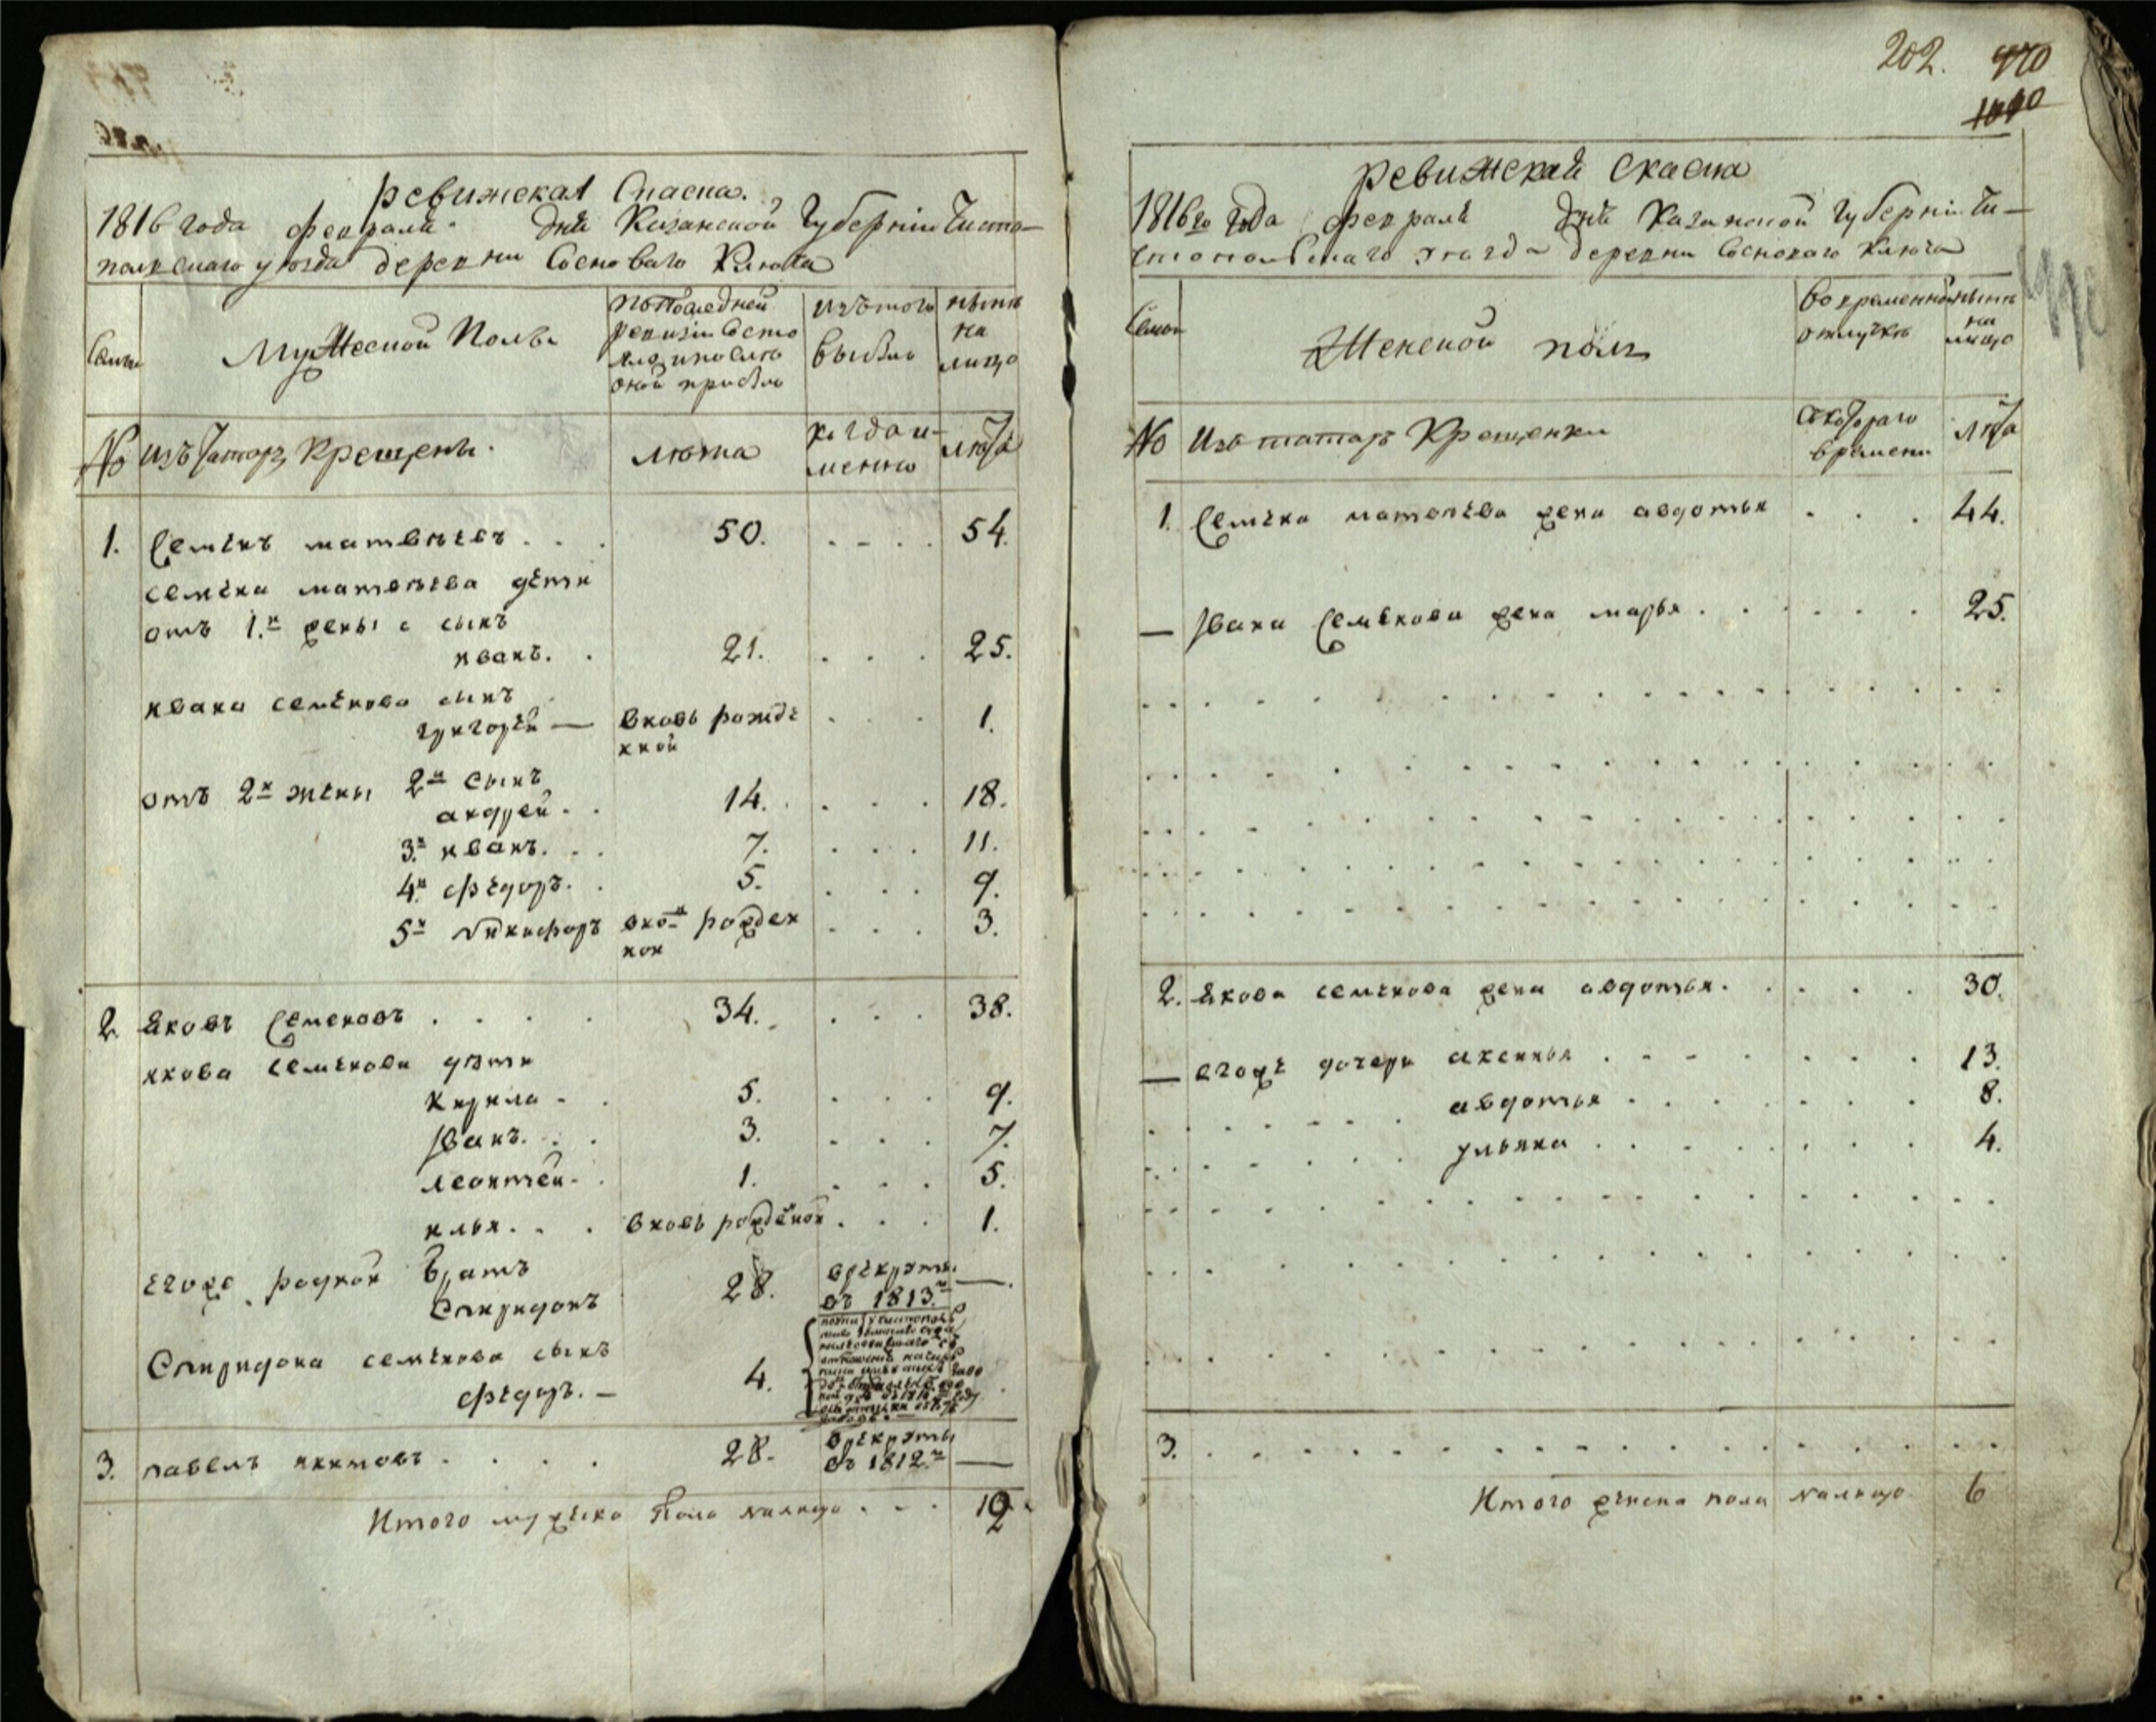 ревижская Скаска.
1816 года февраля дня Казанской Губернiи Чисто–
польскаго уѣзда деревни Сосноваго Ключа
Семьи
Мужеской Полъ
По последней
ревизiи состо
яло и после
оной прибыло
Изъ того
выбыло
нынѣ
на
лицо
No
изъ татаръ крещены.
лѣта
когда и–
менно
лѣта
1. Семенъ матвѣевъ . . . 50. . . . . 54.
семена матвѣева дѣти
отъ 1.й жены 1 сынъ
иванъ. . 21. . . . 25.
ивана семенова сынъ
григорей — вновь рожде . . . 1.
нной
отъ 2й жены 2й сынъ
андрей . . 14. . . . 18.
3.й иванъ. . . 7. . . . 11.
4.й федоръ. . 5. . . . 9.
5й Никифоръ внов рожден . . . 3.
ной
2. яковъ Семеновъ . . . . 34. . . . 38.
якова семенова дѣти
Кирила - . 5. . . . 9.
Иванъ. . . 3. . . . 7.
леонтей - . 1. . . . 5.
илья. . . вновь рожденой . . . 1.
егоже родной братъ
Спиридонъ 28. в рекруты
въ 1813.м —
Спиридона семенова сынъ
федоръ. — 4.
3. павелъ якимовъ . . . . 28. в рекруты
въ 1812.м —
Итого мужеска пола налицо . . . 12.
202. 970
1010
ревижская скаска
1816го года февраля дня Казанской губернiи Чи–
стопольскаго уезда деревни Сосноваго Ключа
Семьи
Женской полъ
Во временной
отлучкѣ
нынѣ
на
лицо
No
Изъ татаръ Крещенки
съ котораго
времени
лѣта
1. Семена матвѣева жена авдотья . . . 44.
— Ивана Семенова жена марья . . . . . . 25.
2. якова семенова жена авдотья . . . . . 30.
— егоже дочери аксинья . . . . . . . 13.
авдотья . . . . . . . 8.
ульяна . . . . . . . 4.
3. . . . . . . . . . .
Итого женска пола налицо 6